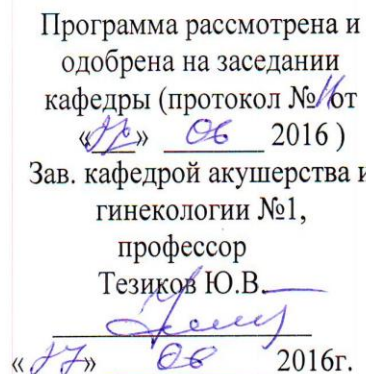 Программа рассмотрена и
одобрена на заседании
кафедры (протокол № 11 от
«27» 06 2016 )
Зав. кафедрой акушерства и
гинекологии №1,
профессор
Тезиков Ю.В.
«27» 06 2016г.